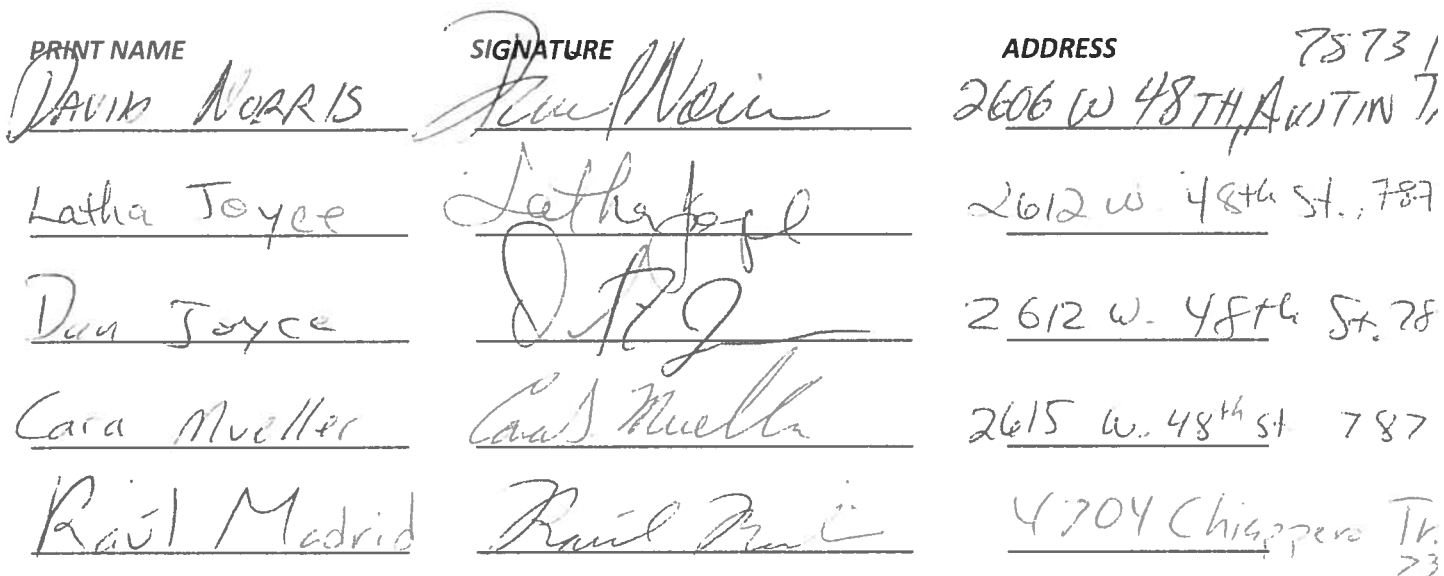 PRINT NAME SIGNATURE ADDRESS 7873
DAVID NORRIS David Norris 2606 W 48TH, AUSTIN
Latha Joyce Latha Joyce 2612 W 48th St., 787
Dan Joyce 2612 W. 48th St. 78
Cara Mueller Cara S Mueller 2615 W. 48th St 787
Raúl Madrid Raúl 4704 Chiappero Tr.